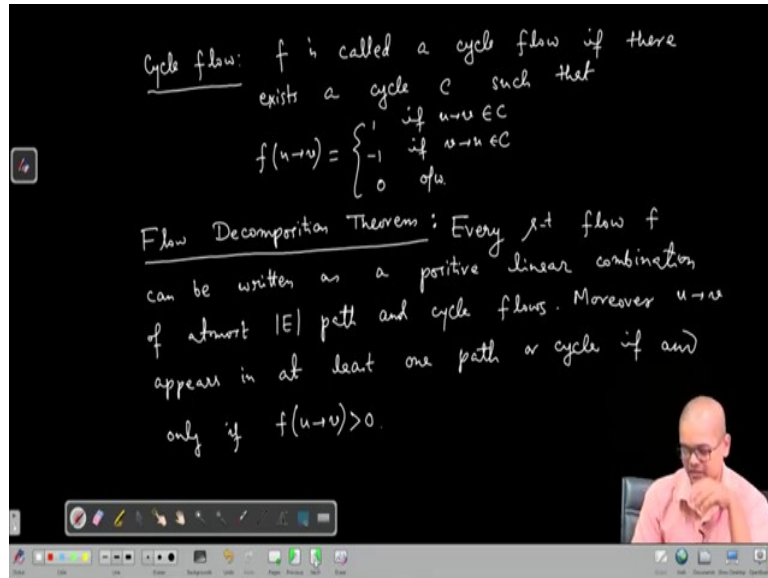 Cycle flow: f is called a cycle flow if there
exists a cycle C such that
f(u→v) = { 1 if u→v ∈ C
-1 if v→u ∈ C
0 o/w.
Flow Decomposition Theorem: Every s-t flow f
can be written as a positive linear combination
of atmost |E| path and cycle flows. Moreover u→v
appears in at least one path or cycle if and
only if f(u→v)>0.